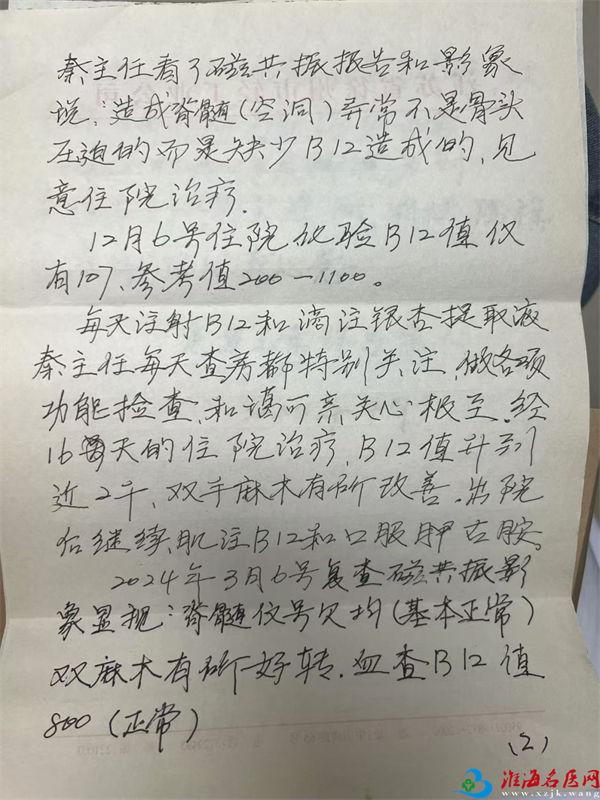 秦主任看了磁共振报告和影象
说：造成脊髓(空洞)异常不是骨头
压迫的而是缺少B12造成的,见
意住院治疗.
12月6号住院化验B12值仅
有107、参考值200—1100。
每天注射B12和滴注银杏提取液
秦主任每天查房都特别关注,做各项
功能捡查,和谒可亲,关心极至.经
16天的住院治疗,B12值升到
近2千,双手麻木有所改善.出院
后继续肌注B12和口服甲古胺。
2024年3月6号复查磁共振影
象显视：脊髓仪号欠均(基本正常)
双麻木有所好转.血查B12值
800(正常)
(2)
淮海名医网
www.xzjk.wang